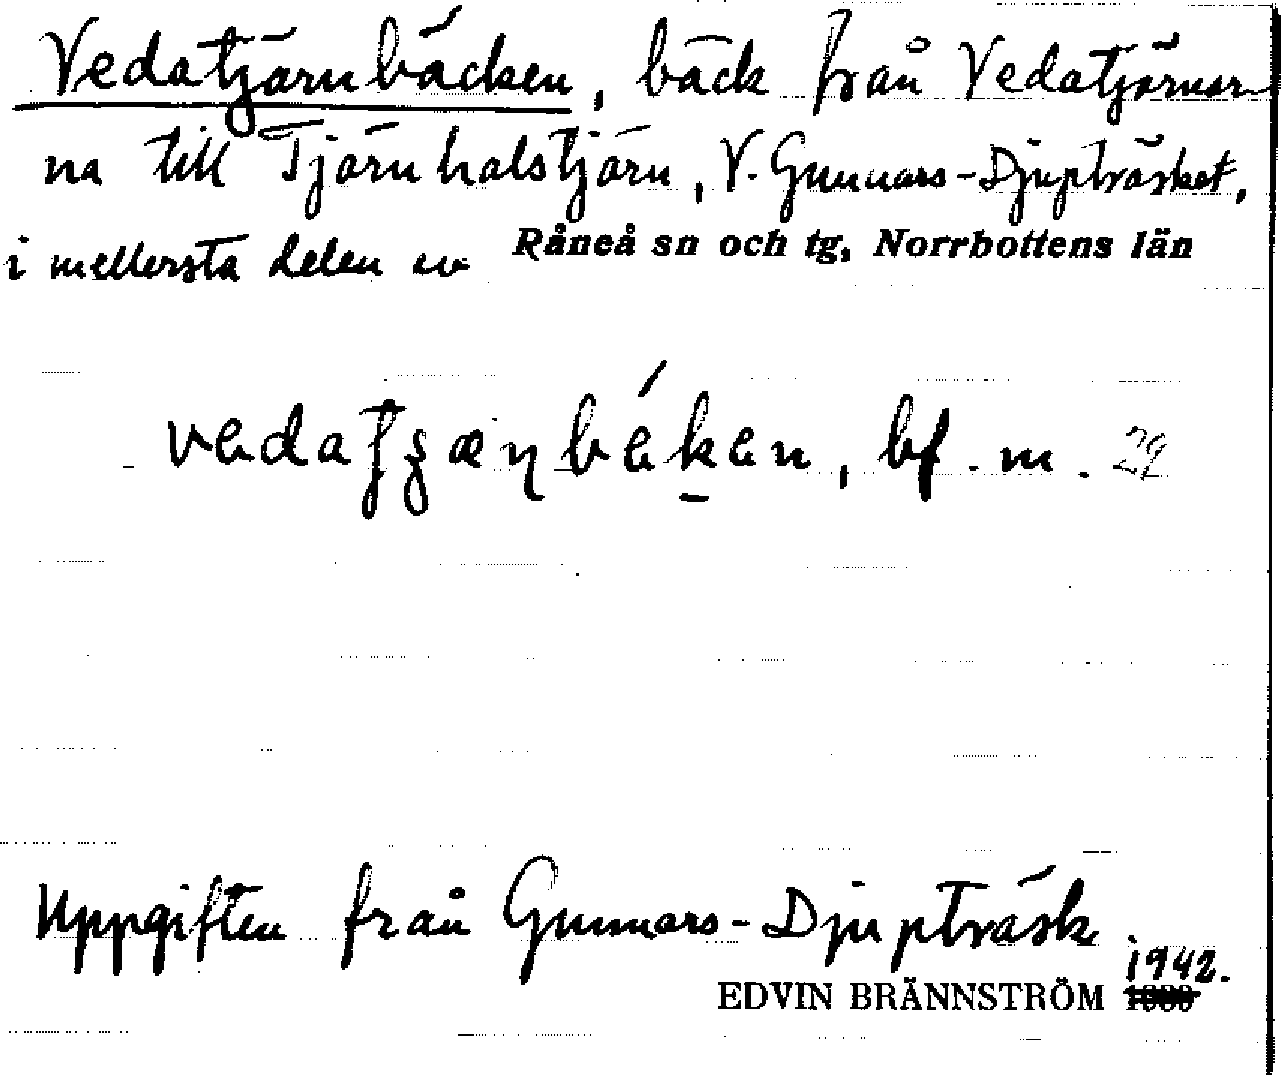 Vedatjärnbäcken, bäck från Vedatjärnar
na till Tjärnhalstjärn, V. Gunnars-Djupträsket,
i mellersta delen av Råneå sn och tg, Norrbottens län
bf. m. 29
Uppgiften från Gunnars-Djupträsk
1942.
EDVIN BRÄNNSTRÖM